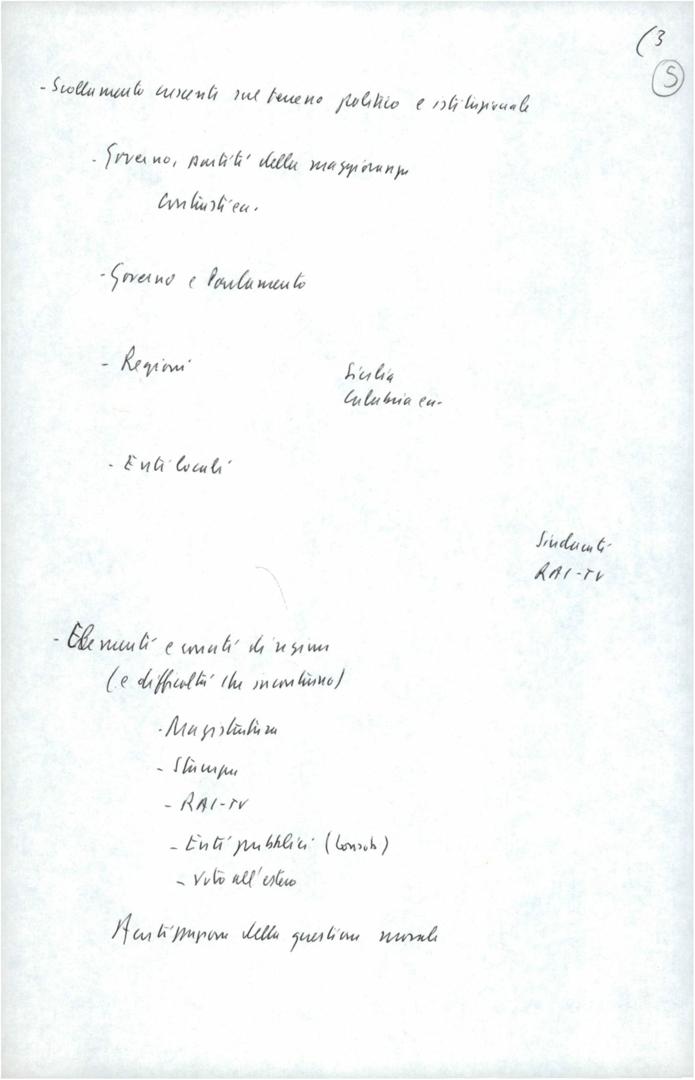 (3
5
- Scollamento crescente sul terreno politico e istituzionale
- Governo, partiti della maggioranza
- Governo e Parlamento
- Regioni
Sicilia
Calabria ecc.
- Enti locali
Sindacati
RAI-TV
- Elementi e conati di regime
(e difficoltà che incontrano)
- Magistratura
- Stampa
- RAI-TV
- Enti pubblici (Consob)
- Voto all'estero
della questione morale